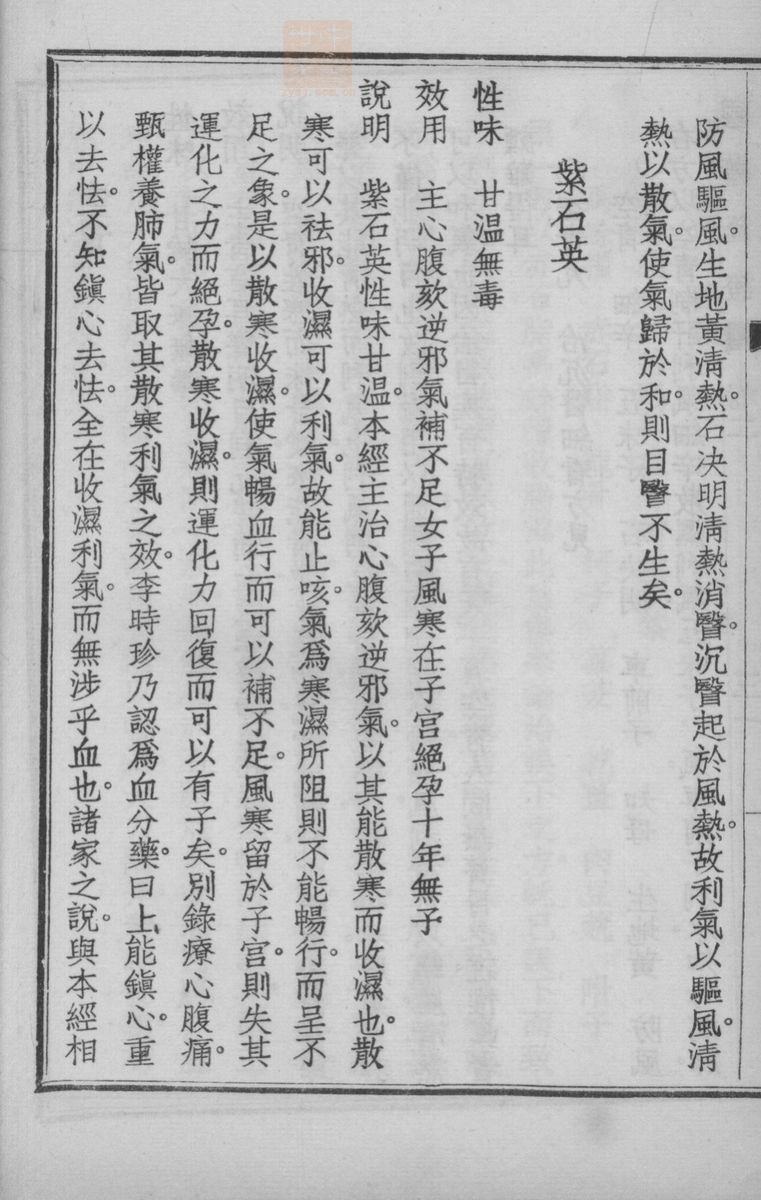 防風驅風。生地黃淸熱。石决明淸熱消瞖。沉瞖起於風熱。故利氣以驅風。淸
熱以散氣。使氣歸於和。則目瞖不生矣。
紫石英
性味　甘温無毒
效用　主心腹欬逆邪氣補不足女子風寒在子宮絕孕十年無子
說明　紫石英性味甘温。本經主治心腹欬逆邪氣。以其能散寒而收濕也。散
寒可以祛邪。收濕可以利氣。故能止咳。氣爲寒濕所阻則不能暢行。而呈不
足之象。是以散寒收濕。使氣暢血行而可以補不足。風寒留於子宮。則失其
運化之力而絕孕。散寒收濕。則運化力回復而可以有子矣。別錄療心腹痛。
甄權養肺氣。皆取其散寒利氣之效。李時珍乃認爲血分藥。曰上能鎭心。重
以去怯。不知鎭心去怯。全在收濕利氣。而無涉乎血也。諸家之說。與本經相